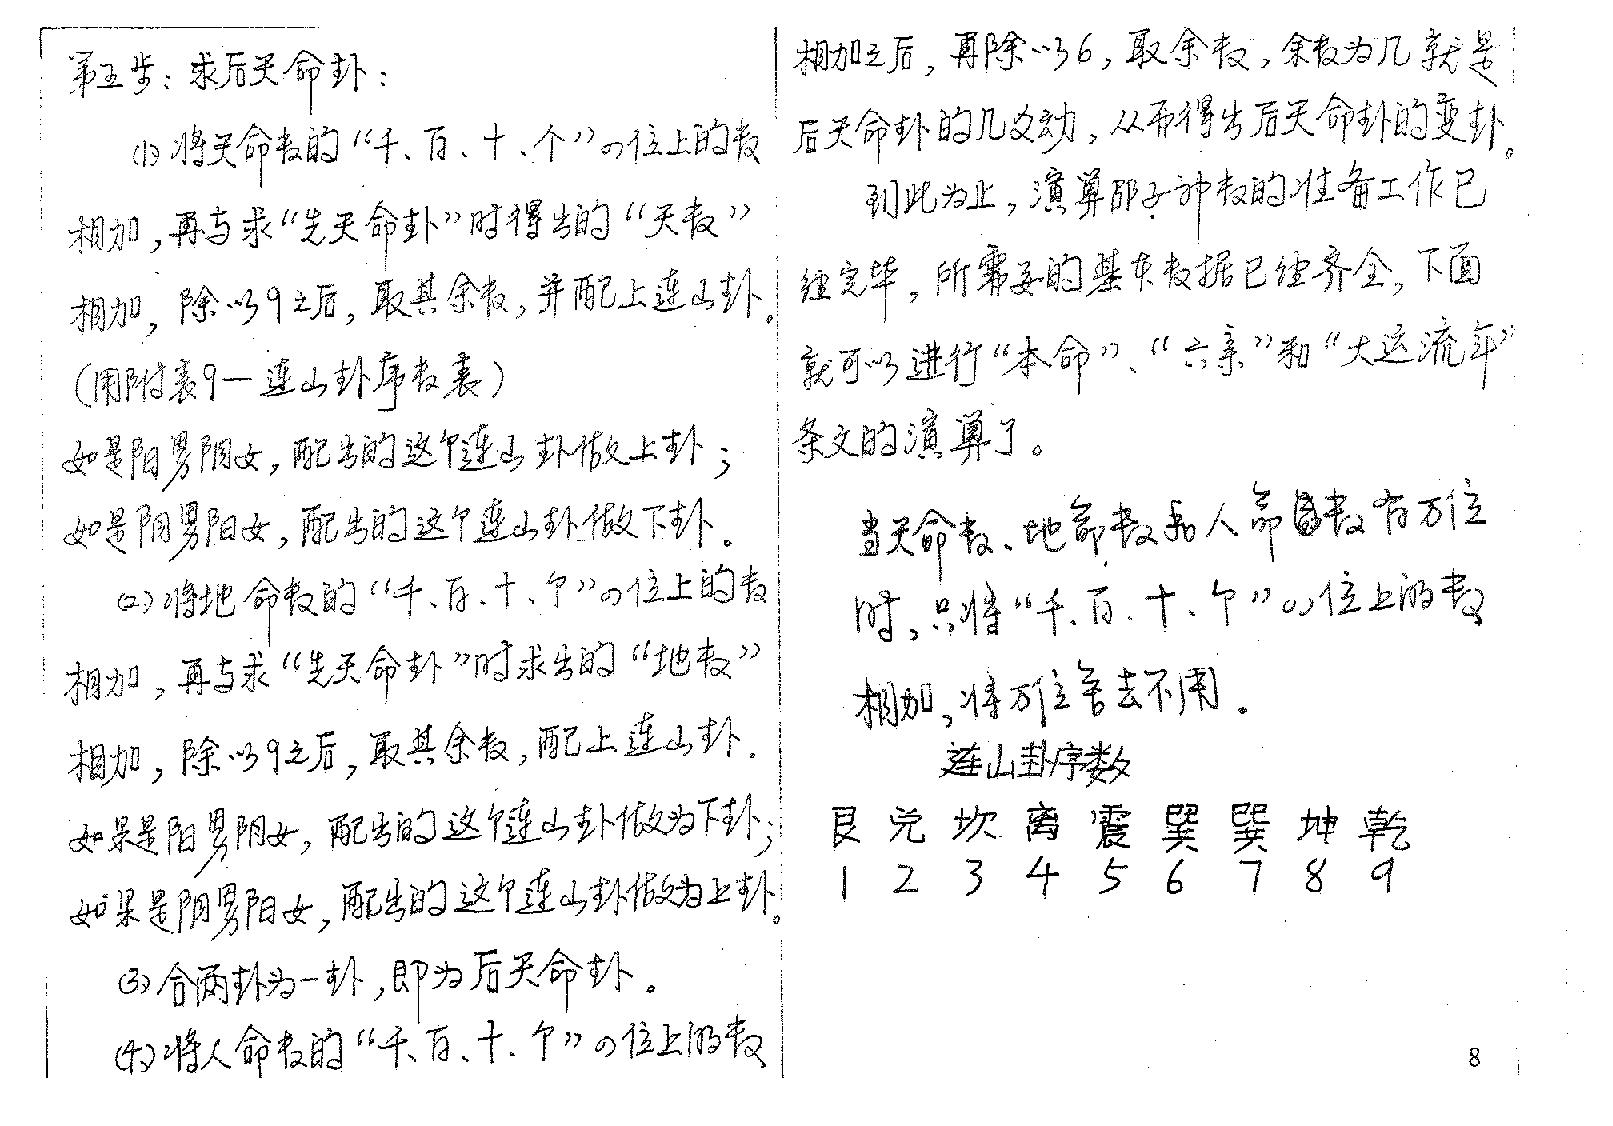 第五步：求后天命卦：
(1)将天命数的“千、百、十、个”四位上的数
相加，再与求“先天命卦”时得出的“天数”
相加，除以9之后，取其余数，并配上连山卦。
(用附表9—连山卦序数表)
如是阳男阴女，配出的这个连山卦做上卦；
如是阴男阳女，配出的这个连山卦做下卦。
(2)将地命数的“千、百、十、个”四位上的数
相加，再与求“先天命卦”时求出的“地数”
相加，除以9之后，取其余数，配上连山卦.
如果是阳男阴女，配出的这个连山卦做为下卦；
如果是阴男阳女，配出的这个连山卦做为上卦。
(3)合两卦为一卦，即为后天命卦。
(4)将人命数的“千、百、十、个”四位上的数
相加之后，再除以6，取余数，余数为几就是
后天命卦的几爻动，从而得出后天命卦的变卦。
到此为止，演算邵子神数的准备工作已
经完毕，所需要的基本数据已经齐全，下面
就可以进行“本命”、“六亲”和“大运流年”
条文的演算了。
当天命数、地命数和人命数有万位
时，只将“千、百、十、个”四位上的数
相加，将万位舍去不用。
连山卦序数
艮 兑 坎 离 震 巽 巽 坤 乾
1 2 3 4 5 6 7 8 9
8